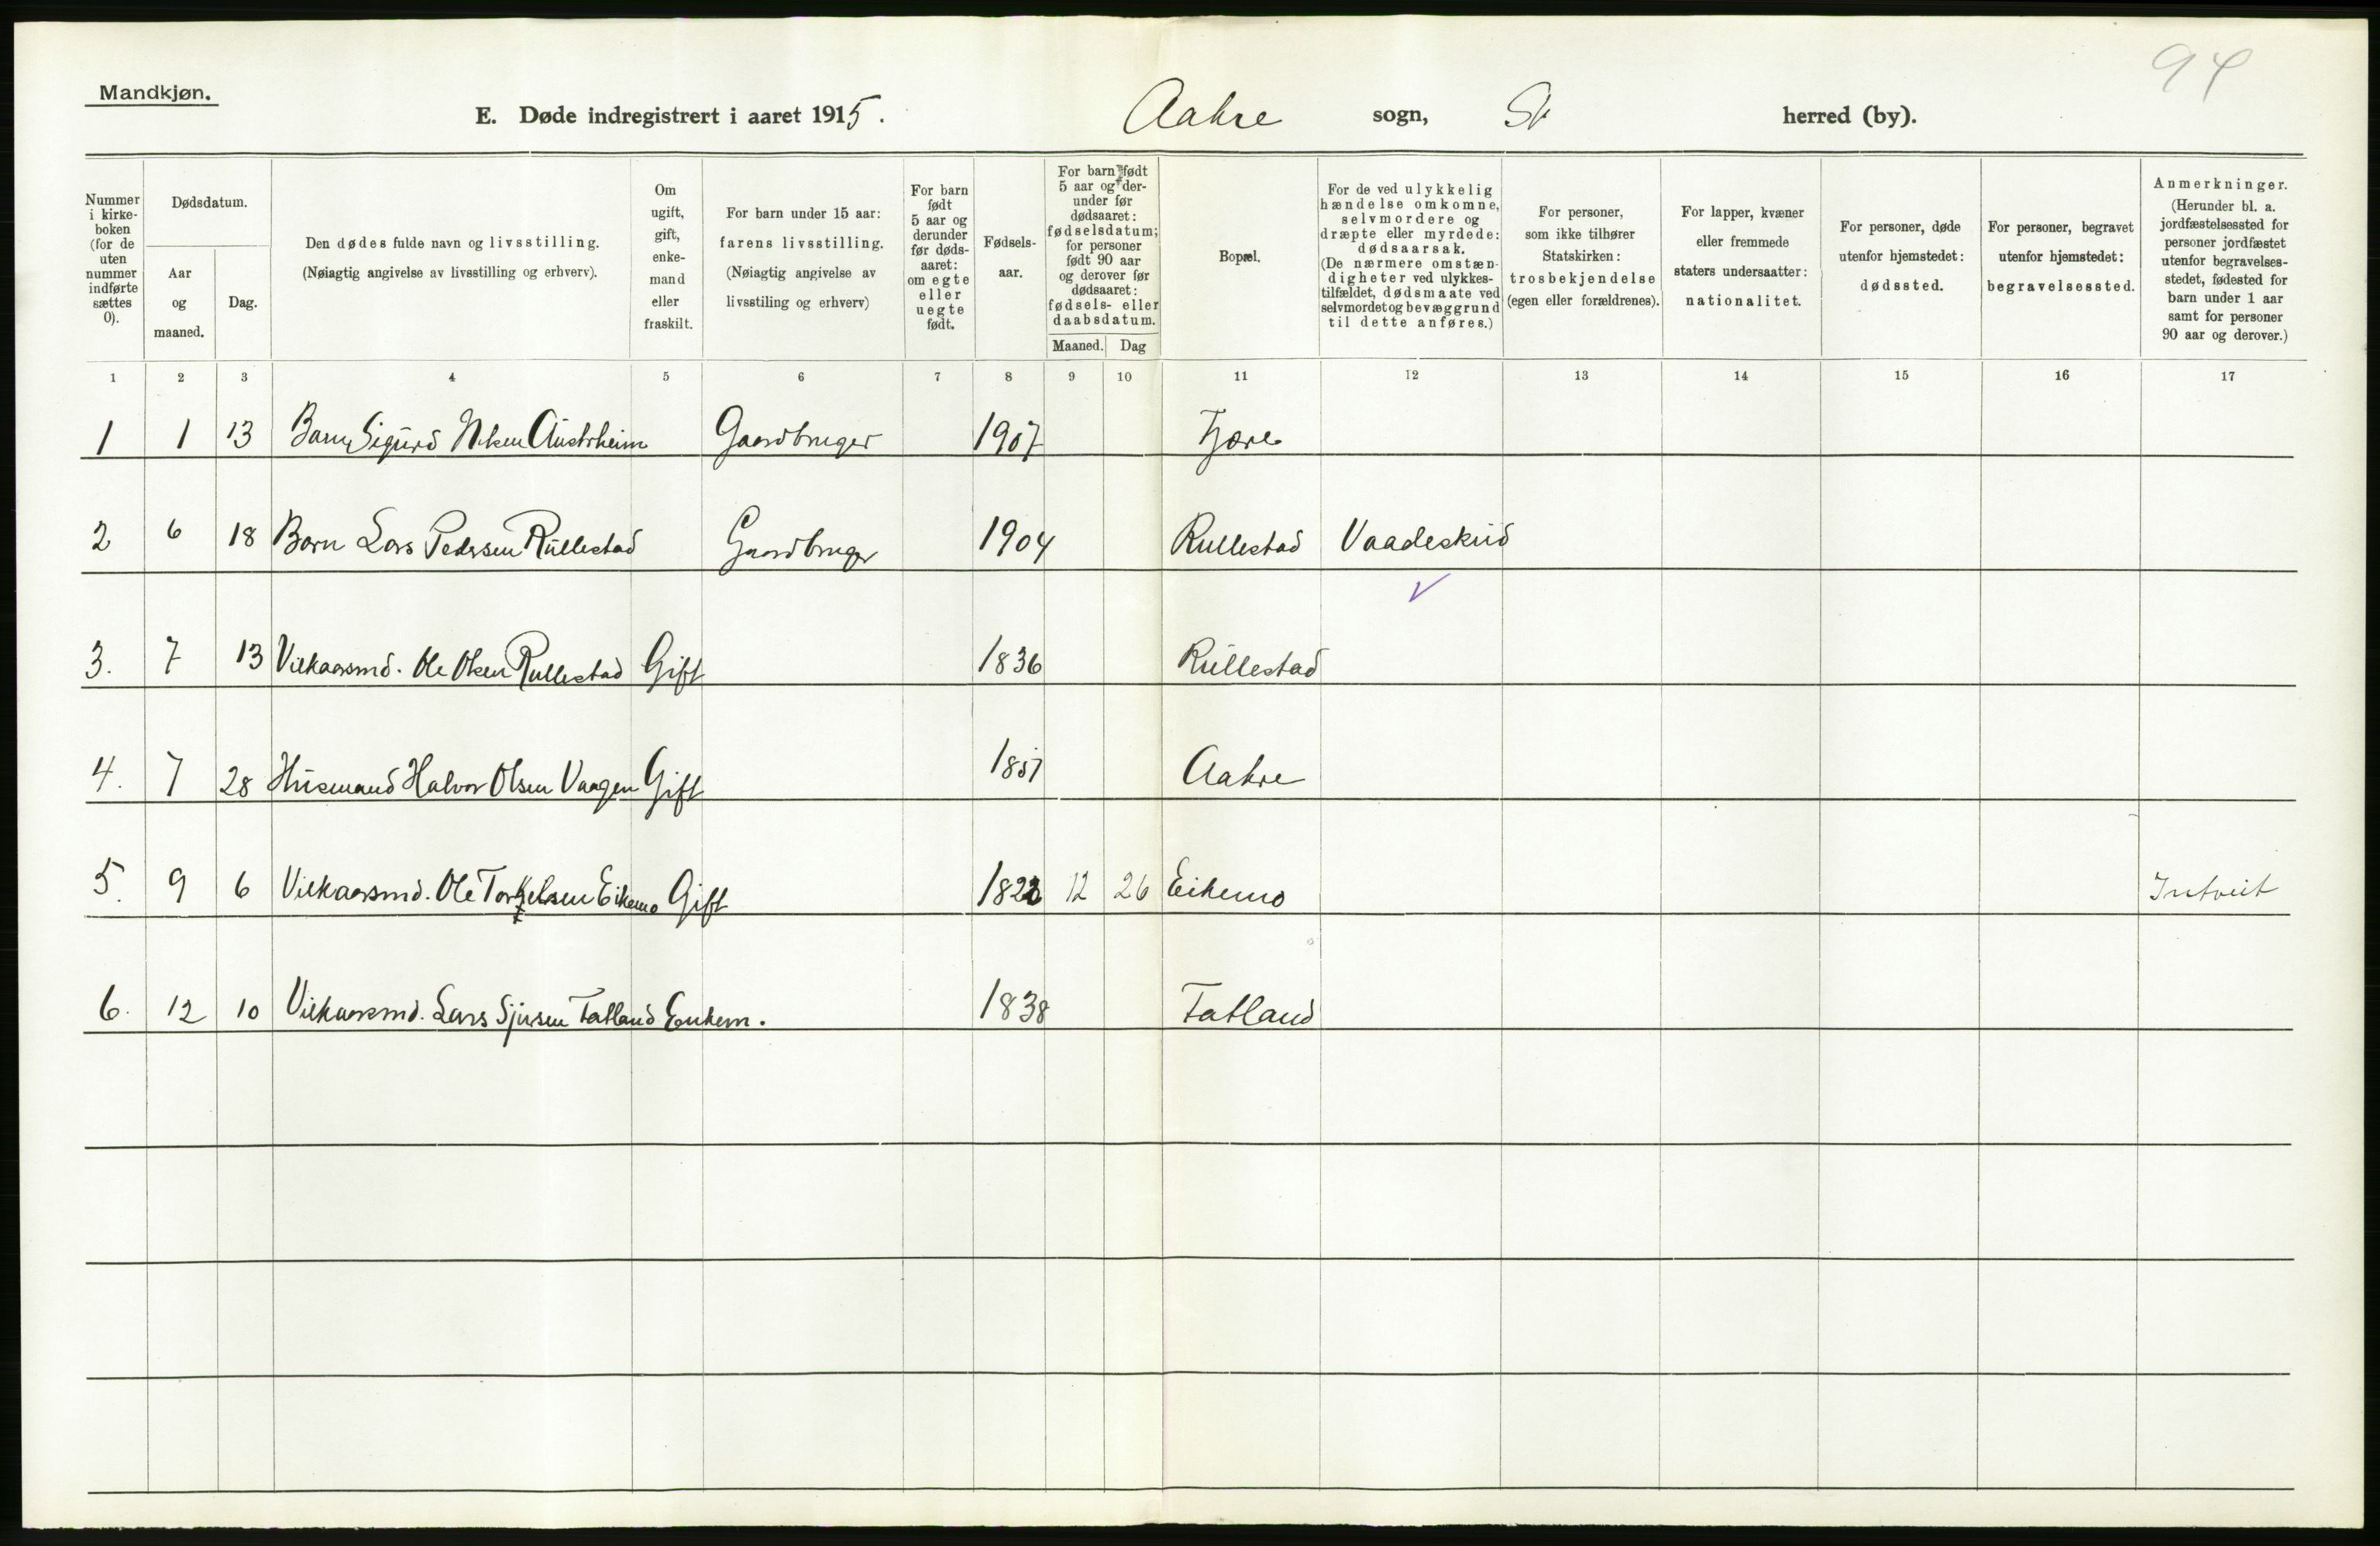 94
Mandkjøn.
E. Døde indregistrert i aaret 1915. Aakre sogn, Sk herred (by).
Nummer i kirke-boken (for de uten nummer indførte sættes 0).
Dødsdatum.
Aar og maaned.
Dag.
Den dødes fulde navn og livsstilling.
(Nøiagtig angivelse av livsstilling og erhverv).
Om ugift, gift, enke-mand eller fraskilt.
For barn under 15 aar:
farens livsstilling.
(Nøiagtig angivelse av livsstiling og erhverv)
For barn født 5 aar og derunder før døds-aaret: om egte eller uegte født.
Fødsels-aar.
For barn født 5 aar og der-under før dødsaaret: fødselsdatum; for personer født 90 aar og derover før dødsaaret: fødsels- eller daabsdatum.
Maaned. Dag
Bopæl.
For de ved ulykkelig hændelse omkomne, selvmordere og dræpte eller myrdede: dødsaarsak.
(De nærmere omstæn-digheter ved ulykkes-tilfældet, dødsmaate ved selvmordet og bevæggrund til dette anføres.)
For personer, som ikke tilhører Statskirken: trosbekjendelse (egen eller forældrenes).
For lapper, kvæner eller fremmede staters undersaatter: nationalitet.
For personer, døde utenfor hjemstedet: dødssted.
For personer, begravet utenfor hjemstedet: begravelsessted.
Anmerkninger.
(Herunder bl. a. jordfæstelsessted for personer jordfæstet utenfor begravelses-stedet, fødested for barn under 1 aar samt for personer 90 aar og derover.)
1 2 3 4 5 6 7 8 9 10 11 12 13 14 15 16 17
1 1 13 Barn Sigurd Austrheim Gaardbruger 1907 Fjære
2 6 18 Barn Lars Pedersen Rullestad Gaardbruger 1904 Rullestad Vaadeskud
3. 7 13 Vilkaarsmd. Ole Olsen Rullestad Gift 1836 Rullestad
4. 7 28 Husmand Halvor Olsen Vaagen Gift 1851 Aakre
5. 9 6 Vilkaarsmd. Ole Torkelsen Eikemo Gift 1823 12 26 Eikemo Intveit
6. 12 10 Vilkaarsmd. Lars Sjursen Tatland Enkem. 1838 Tatland